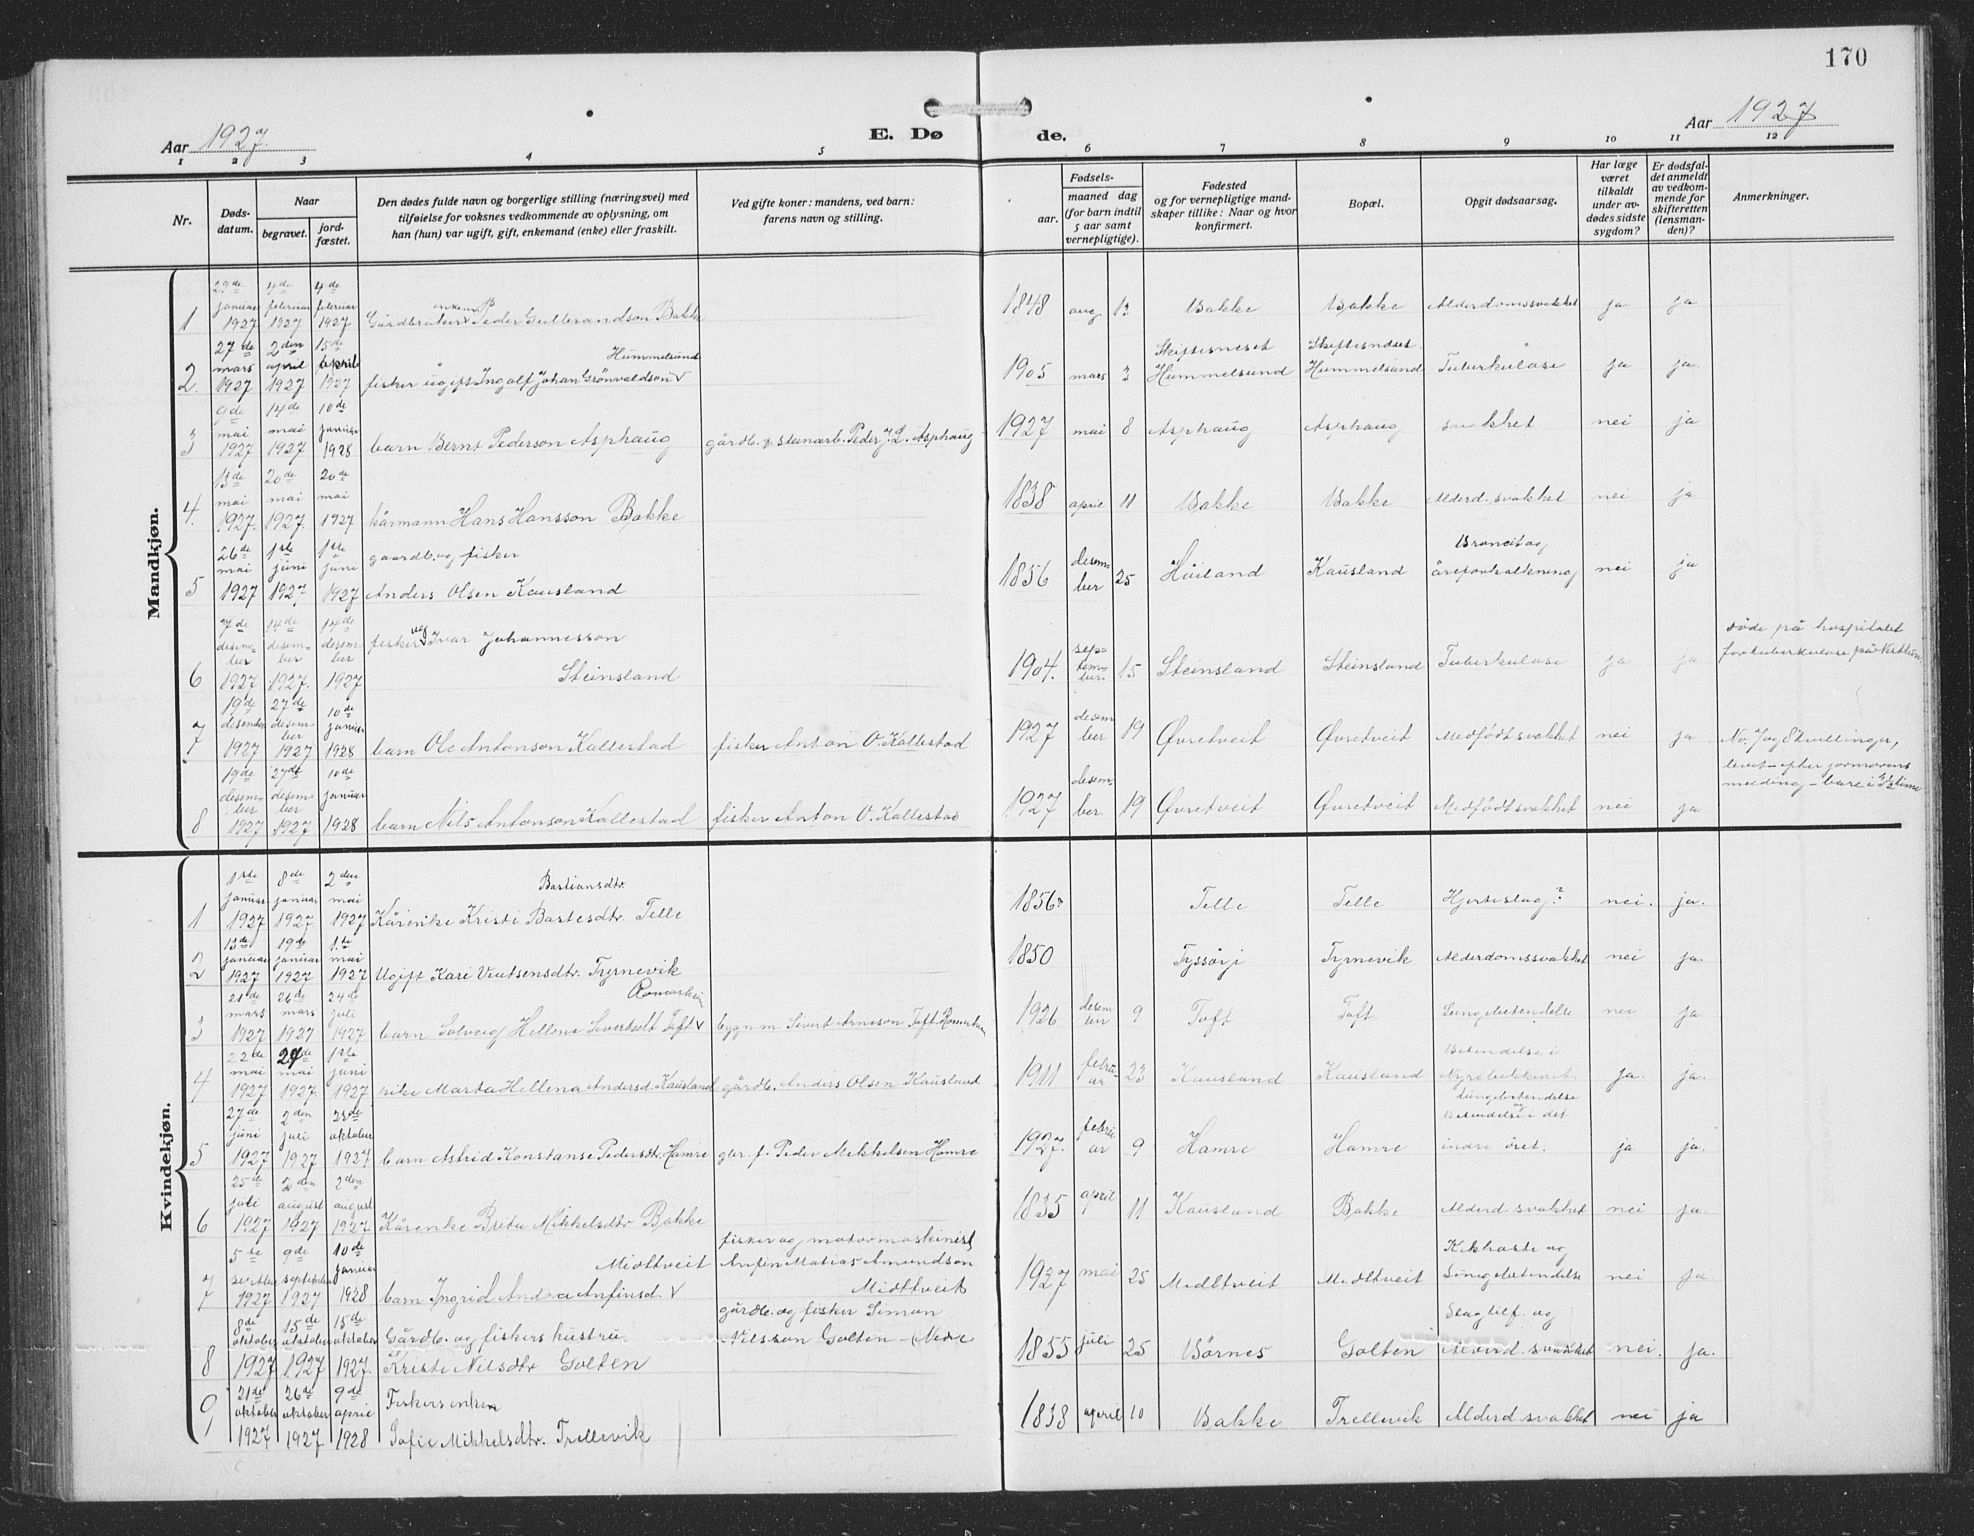 170
Aar 1927.
E. Døde.
Aar 1927
1 2 3 4 5 6 7 8 9 10 11 12
Nr.
Døds-datum.
Naar
begravet.
jord-fæstet.
Den dødes fulde navn og borgerlige stilling (næringsvei) med
tilføielse for voksnes vedkommende av oplysning, om
han (hun) var ugift, gift, enkemand (enke) eller fraskilt.
Ved gifte koner: mandens, ved barn:
farens navn og stilling.
Fødsels-
aar.
maaned dag
(for barn indtil
5 aar samt
vernepligtige).
Fødested
og for vernepligtige mand-
skaper tillike: Naar og hvor
konfirmert.
Bopæl.
Opgit dødsaarsag.
Har læge
været
tilkaldt
under av-
dødes sidste
sygdom?
Er dødsfal-
det anmeldt
av vedkom-
mende for
skifteretten
(lensman-
den)?
Anmerkninger.
Mandkjøn.
1 29de januar 1927 4de februar 1927 4de februar 1927 Gårdbruker enkem. Peder Gulbrandson Bakke 1848 aug. 13 Bakke Bakke Alderdomssvakhet ja ja
2. 27de mars 1927 2den april 1927 15de april 1927 fisker ugift Ingolf Johan Grønvaldson Hummelsund 1905 mars 3 Skiftesneset Hummelsund Skiftesneset Hummelsund Tuberkulose ja ja.
3 9de mai 1927 14de mai 1927 10de januar 1928 barn Bernt Pederson Asphaug gårdb. & stenarb. Peder J. L. Asphaug 1927 mai 8 Asphaug Asphaug svakhet nei ja
4. 13de mai 1927. 20de mai 1927. 20de mai 1927 kårmann Hans Hansson Bakke 1838 april 11 Bakke Bakke Alderd. svakhet nei ja
5 26de mai 1927 1ste juni 1927 1ste juni 1927 gaardb. og fisker
Anders Olsen Kausland 1856 desember 25 Kausland Broncit og
åreforkalkning nei ja
6 7de desember 1927 14de desember 1927. 14de desember 1927 fisker ug Ivar Johannesson
Steinsland 1904. september 15 Steinsland Steinsland Tuberkulose ja ja. døde på hospitalet
for tuberkulose på
7 19de desember 1927 27de desember 1927 10de januar 1928 barn Ole Antonson Kallestad fisker Anton O. Kallestad 1927 desember 19 Øvretveit Øvretveit Medfødt svakhet nei ja No. 7 og 8 tvillinger,
levet – efter jormorens
melding – bare i ½ time
8 19de desember 1927 27de desember 1927 10de januar 1928 barn Nils Antonson Kallestad fisker Anton O. Kallestad 1927 desember 19 Øvretveit Øvretveit Medfødt svakhet nei ja
Kvindekjøn.
1 1ste januar 1927 8de januar 1927. 2den mai 1927 Kårenke Kristi Bastesdtr. Bastiansdtr. Telle 1856? Telle Telle Hjerteslag? nei. ja.
2 13de januar 1927 19de januar 1927 1ste mai 1927 Ugift Kari Tyrnevik 1850 Tyssøy Tyrnevik Alderdomssvakhet nei ja.
3 21de mars 1927 26de mars 1927 24de juli 1927 barn Solveig Hellene Sivertsdt Toft bygn. m. Sivert Arneson Toft 1926 desember 9 Toft Toft Lungebetendelse nei ja
4 22de mai 1927 mai 1927. 1ste juni 1927 Marta Hellena Andersd. Kausland gårdb. Anders Olsen Kausland 1911 februar 23 Kausland Kausland Betendelse i
Nyrebekkenet. ja. ja.
5 27de juni 1927 2den juli 1927 23de oktober 1927 barn Astrid Konstanse Pedersdtr. Hamre gbr. f. Peder Mikkelsen Hamre 1927. februar 9 Hamre Hamre Lungebetendelse
og Betendelse i det
indre øret. ja ja.
6 25de juli 1927 2den august 1927 2den august 1927 Kårenke Brita Mikkelsdtr Bakke 1835 april 11 Kausland Bakke Alderd. svakhet nei ja.
7 5te september 1927 9de september 1927 10de januar 1928 barn Ingrid Andrea Anfinsd. Midttveit fisker og motormaskinist
Anfin Matias Amundson
Midttveit 1927 mai 25 Midttveit Midttveit Kikhoste og
Lungebetendelse nei ja
8 8de oktober 1927 15de oktober 1927 15de oktober 1927. Gårdb. og fiskers hustru
Kristi Nilsdtr Golten gårdb. og fisker Simon
Nilsson Golten – Nedre 1855 juli 25 Børnes Golten Slagtilf. og
Alderd. svakhet nei. ja.
9 21de oktober 1927 26de oktober 1927 9de april 1928 Fiskersenke
Sofie Mikkelsdtr. Trellevik 1838 april 10 Bakke Trellevik Alderd. svakhet nei ja